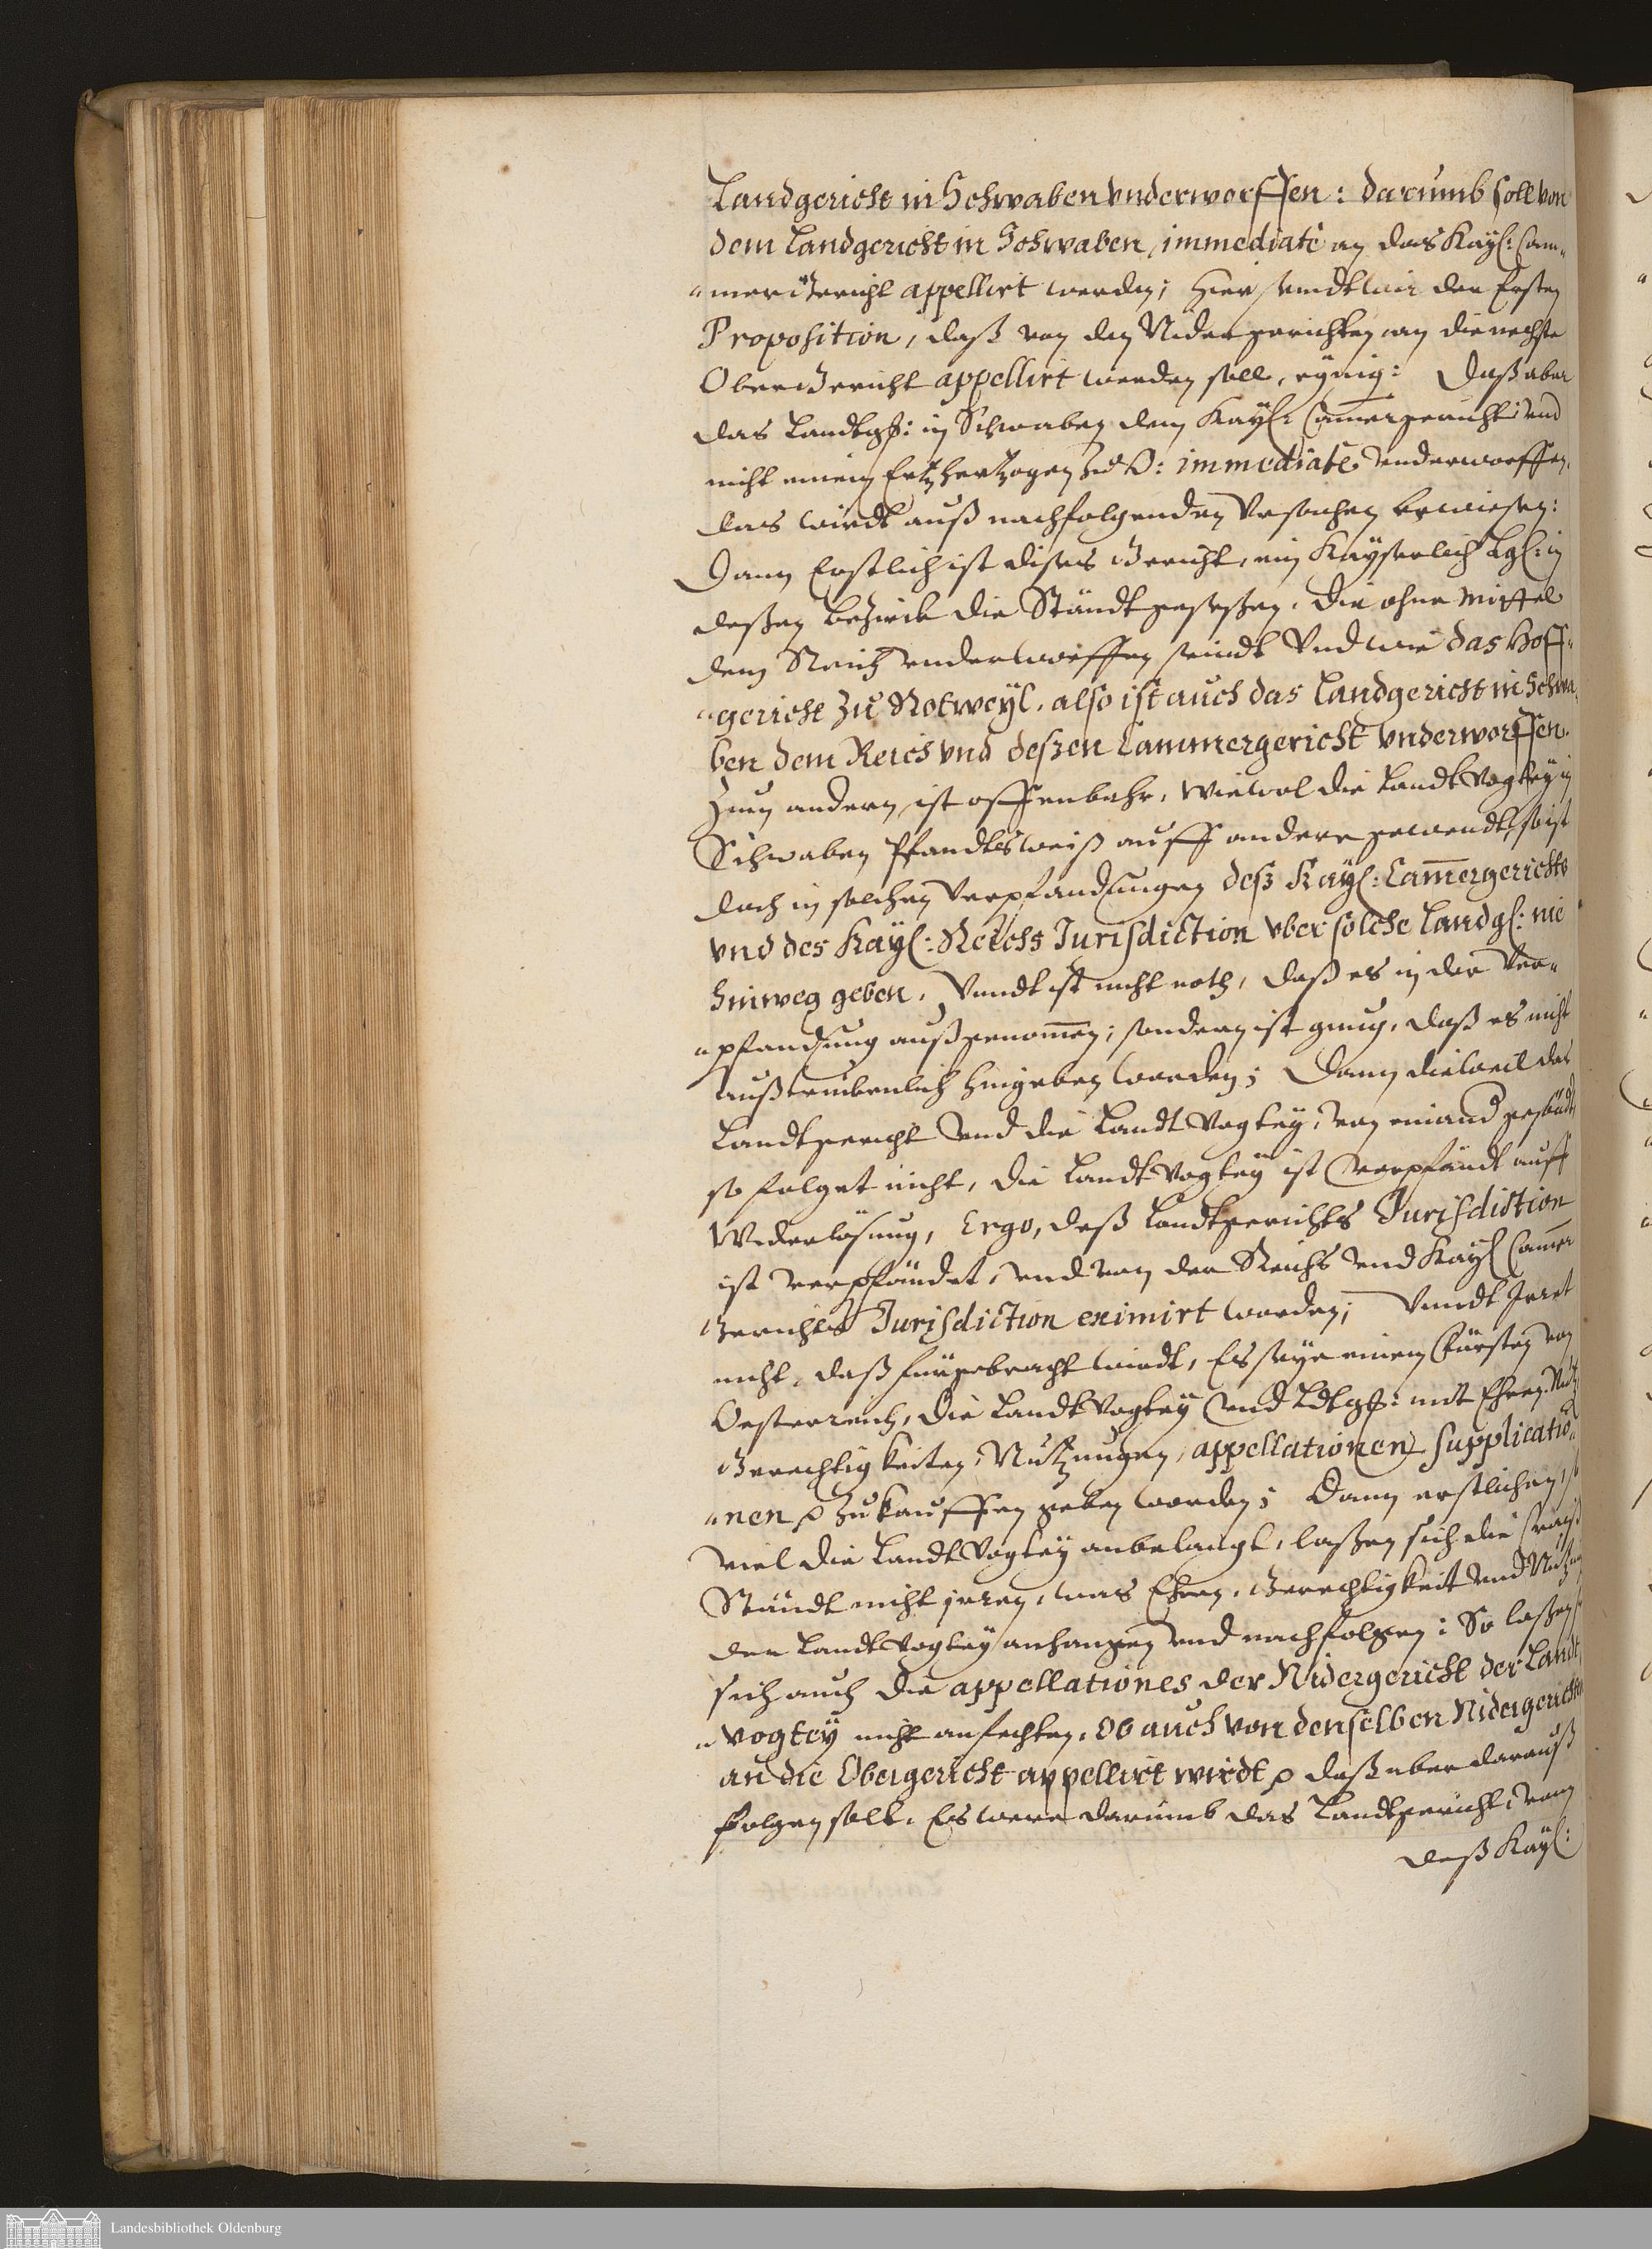 Landgericht in Schwaben vnderworffen: darumb soll von
dem Landgericht in Schwaben, immediatè an das Kayß: Cam„
„mer Gericht appellirt werden; hier seindt wir der Ersten
Proposition, daß von den Nidergerichten an die nechste
Ober Gericht appellirt werden soll, eynig: Daß aber
das Landtgß: in Schwaben dem Kayß: Cam̄ergericht vnd
nicht einem Ertzhertzogen zu O: immediatè vnderworffen,
das wirdt auß nachfolgenden Vrsachen bewiesen:
Dann Erstlich ist dises Gericht, ein Kayserlich Lgß: in
deßen bezirck die Ständt geseßen, die ohne mittel
dem Reich vnderworffen seindt Vnd wie das Hoff„
„gericht zu Rotweyl, also ist auch das Landgericht in Schwa„
ben dem Reich vnd deßen Cammergericht vnderworffen.
Zum andern ist offenbahr, wiewol die Landt Vogtey in
Schwaben Pfandtsweiß auff andere gewendt, so ist
doch in solchen Verpfandungen deß Kayß: Cam̄ergerichts
vnd des Kayß: Reichs Jurisdiction vber solche Landgß: nie
hinweg geben, Vnndt ist nicht noth, daß es in der Ver„
„pfandung außgenom̄en; sondern ist gnug, daß es nicht
außtruckenlich hingeben worden; Dann dieweil das
Landtgericht vnd die Landt Vogtey, von einand
so folget nicht, die Landt Vogtey ist verpfändt auff
Widerlösung, Ergo, deß Landtgerichts Jurisdiction
ist verpfändet, vnd von der Reichs vnd Kayß Cam̄er
Gerichts Jurisdiction eximirt worden; Vnndt Jrret
nicht, daß fürgebracht wirdt, Es seye einem Fürsten von
Oesterreich, die Landt Vogtey vnd Ldtgß: mit Ehren
Gerechtigkeiten, Nutzungen, appellationen, supplicatio„
„nen zukauffen geben worden; Dann erstlichen, so
viel die Landt Vogtey anbelangt, laßen sich die
Ständt nicht jrren, was Ehren, Gerechtigkeit vnd Nutzung
der Landt Vogtey anhangen vnd nachfolgen: So laßen
sich auch die appellationes der Nidergericht der Landt
„vogtey nicht anfechten, Ob auch von denselben Nidergerichten
an die Obergericht appellirt wirdt daß aber darauß
folgen solt, Es were darumb das Landtgericht, von
deß Kayß:
Landesbibliothek Oldenburg